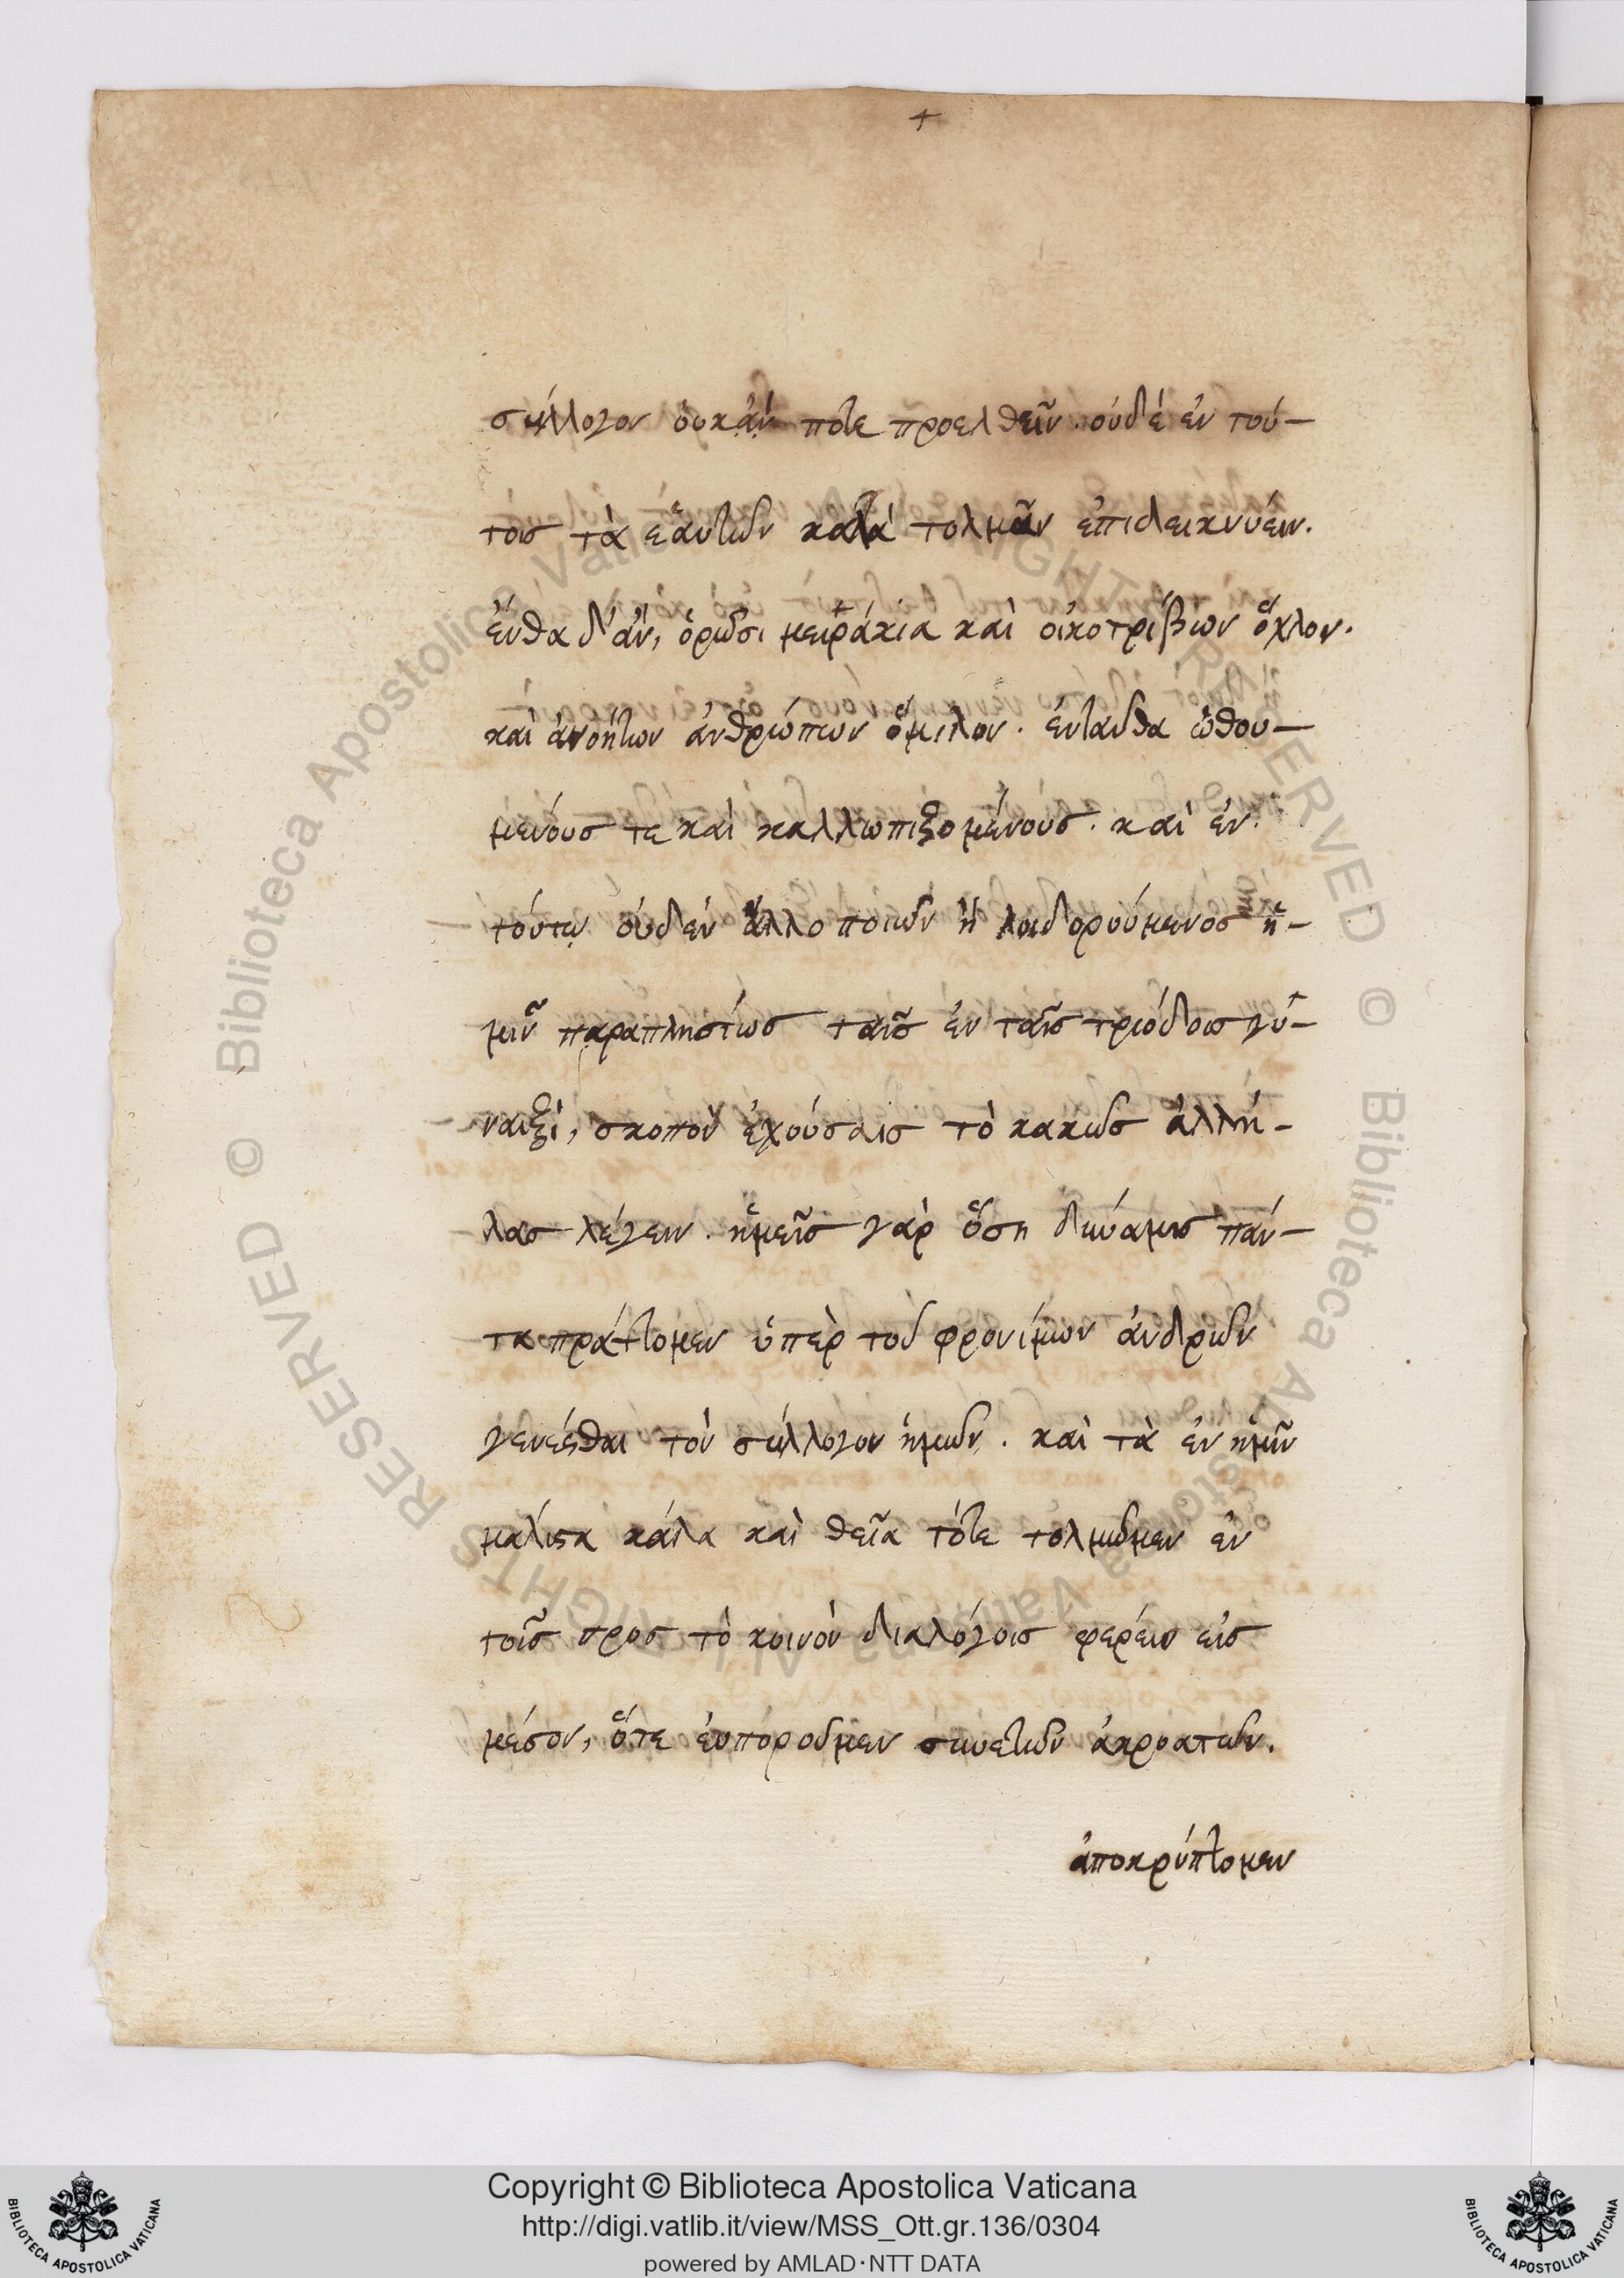 +
σύλλογον ὀυκ ἄν ποτε προελθεῖν. ὀυδὲ ἐν τού-
τοις τὰ ἑαυτῶν καλὰ τολμᾶν ἐπιδεικνύειν.
ἔνθα δ' ἂν, ὁρῶσι μειράκια καὶ οἰκοτρίβων ὄχλον.
καὶ ἀνοήτων ἀνθρώπων ὅμιλον. ἐνταῦθα ὠθου-
μένους τε καὶ καλλωπιζομένους. καὶ ἐν
τούτῳ ὀυδὲν ἄλλο ποιῶν ἢ λοιδορούμενος ἡ-
μῖν παραπλησίως ταῖς ἐν ταῖς τριόδοις γυ-
ναιξὶ, σκοπὸν ἐχούσαις τὸ κακῶς ἀλλή-
λας λέγειν. ἡμεῖς γὰρ ὅση δύναμις πάν-
τα πράττομεν ὑπὲρ τοῦ φρονίμων ἀνδρῶν
γενέσθαι τὸν σύλλογον ἡμῶν. καὶ τὰ ἐν ἡμῖν
μάλιστα κάλα καὶ θεῖα τότε τολμῶμεν ἐν
τοῖς προς τὸ κοινὸν διαλόγοις φέρειν εἰς
μέσον, ὅτε ἐυποροῦμεν συνετῶν ἀκροατῶν.
ἀποκρύπτομεν
Copyright © Biblioteca Apostolica Vaticana
http://digi.vatlib.it/view/MSS_Ott.gr.136/0304
powered by AMLAD·NTT DATA
BIBLIOTECA APOSTOLICA VATICANA
BIBLIOTECA APOSTOLICA VATICANA
© Biblioteca Apostolica Vaticana ALL RIGHTS RESERVED
© Biblioteca Apostolica Vaticana ALL RIGHTS RESERVED